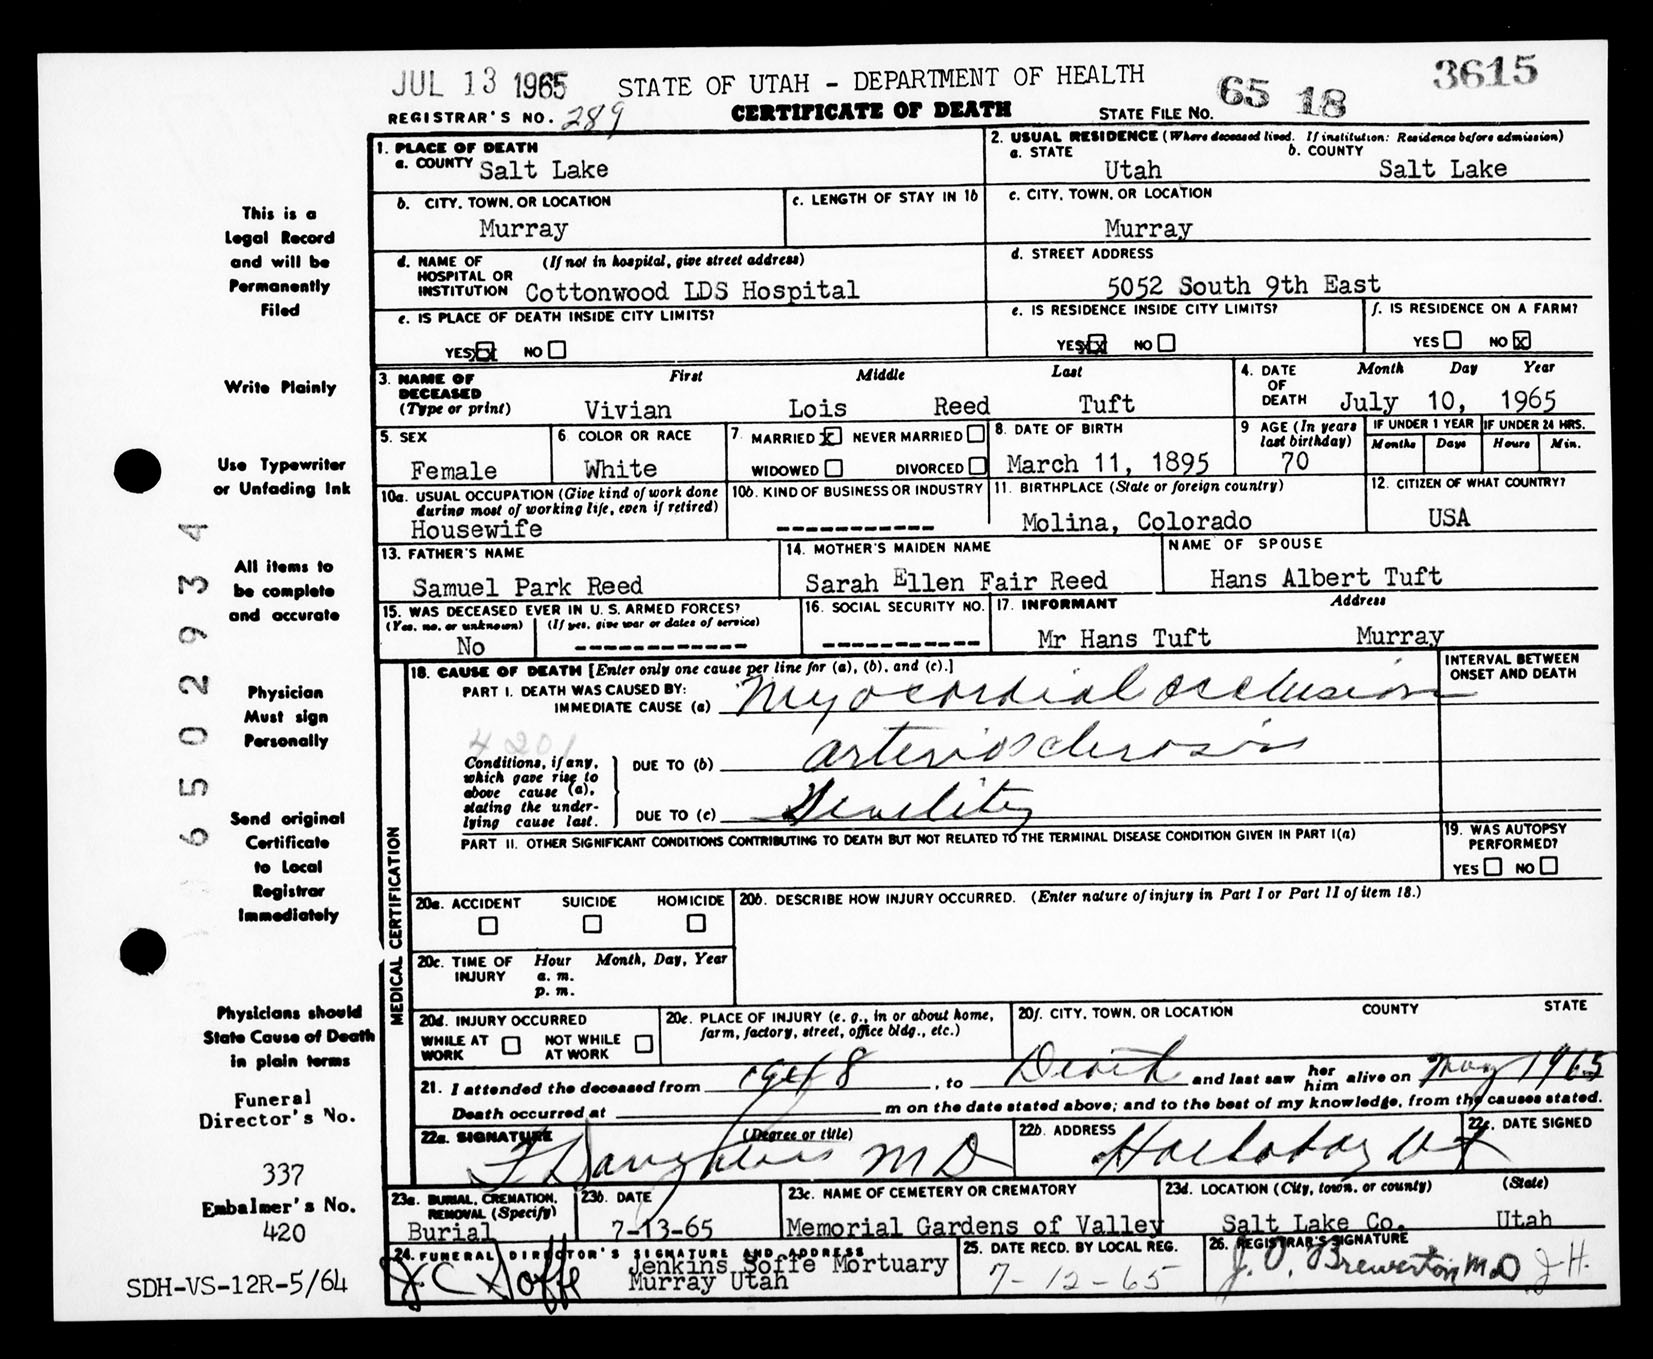 JUL 13 1965 STATE OF UTAH - DEPARTMENT OF HEALTH 65 18 3615
REGISTRAR'S NO. 289 CERTIFICATE OF DEATH STATE FILE NO.
1. PLACE OF DEATH
a. COUNTY Salt Lake
2. USUAL RESIDENCE (Where deceased lived. If institution: Residence before admission)
a. STATE Utah b. COUNTY Salt Lake
b. CITY, TOWN, OR LOCATION Murray
c. LENGTH OF STAY IN 1b
c. CITY, TOWN, OR LOCATION Murray
d. NAME OF HOSPITAL OR INSTITUTION (If not in hospital, give street address) Cottonwood LDS Hospital
d. STREET ADDRESS 5052 South 9th East
e. IS PLACE OF DEATH INSIDE CITY LIMITS?
YES XX NO
e. IS RESIDENCE INSIDE CITY LIMITS?
YES XX NO
f. IS RESIDENCE ON A FARM?
YES NO X
3. NAME OF DECEASED (Type or print) First Middle Last
Vivian Lois Reed Tuft
4. DATE OF DEATH Month Day Year
July 10, 1965
5. SEX Female
6 COLOR OR RACE White
7 MARRIED X NEVER MARRIED
WIDOWED DIVORCED
8. DATE OF BIRTH March 11, 1895
9 AGE (In years last birthday) 70
IF UNDER 1 YEAR Months Days
IF UNDER 24 HRS. Hours Min.
10a. USUAL OCCUPATION (Give kind of work done during most of working life, even if retired)
Housewife
10b. KIND OF BUSINESS OR INDUSTRY
-----------
11. BIRTHPLACE (State or foreign country)
Molina, Colorado
12. CITIZEN OF WHAT COUNTRY?
USA
13. FATHER'S NAME
Samuel Park Reed
14. MOTHER'S MAIDEN NAME
Sarah Ellen Fair Reed
NAME OF SPOUSE
Hans Albert Tuft
15. WAS DECEASED EVER IN U. S. ARMED FORCES?
(Yes, no, or unknown) (If yes, give war or dates of service)
No ------------
16. SOCIAL SECURITY NO.
-----------
17. INFORMANT Address
Mr Hans Tuft Murray
MEDICAL CERTIFICATION
18. CAUSE OF DEATH [Enter only one cause per line for (a), (b), and (c).]
INTERVAL BETWEEN ONSET AND DEATH
PART I. DEATH WAS CAUSED BY:
IMMEDIATE CAUSE (a) Myocordial occlusion
4201
Conditions, if any, which gave rise to above cause (a), stating the underlying cause last.
DUE TO (b) arteriosclerosis
DUE TO (c) Senility
PART II. OTHER SIGNIFICANT CONDITIONS CONTRIBUTING TO DEATH BUT NOT RELATED TO THE TERMINAL DISEASE CONDITION GIVEN IN PART I(a)
19. WAS AUTOPSY PERFORMED?
YES NO
20a. ACCIDENT SUICIDE HOMICIDE
20b. DESCRIBE HOW INJURY OCCURRED. (Enter nature of injury in Part I or Part II of item 18.)
20c. TIME OF INJURY Hour Month, Day, Year
a. m.
p. m.
20d. INJURY OCCURRED
WHILE AT WORK NOT WHILE AT WORK
20e. PLACE OF INJURY (e. g., in or about home, farm, factory, street, office bldg., etc.)
20f. CITY, TOWN, OR LOCATION COUNTY STATE
21. I attended the deceased from , to Death and last saw her him alive on May 1965
Death occurred at m on the date stated above; and to the best of my knowledge, from the causes stated.
22a. SIGNATURE (Degree or title) MD
22b. ADDRESS Holladay Ut
22c. DATE SIGNED
23a. BURIAL, CREMATION, REMOVAL (Specify)
Burial
23b. DATE
7-13-65
23c. NAME OF CEMETERY OR CREMATORY
Memorial Gardens of Valley
23d. LOCATION (City, town, or county) (State)
Salt Lake Co. Utah
24. FUNERAL DIRECTOR'S SIGNATURE AND ADDRESS
J C Soffe Jenkins Soffe Mortuary
Murray Utah
25. DATE RECD. BY LOCAL REG.
7-12-65
26. REGISTRAR'S SIGNATURE
J. O. Brewerton MD J H.
This is a
Legal Record
and will be
Permanently
Filed
Write Plainly
Use Typewriter
or Unfading Ink
All items to
be complete
and accurate
Physician
Must sign
Personally
Send original
Certificate
to Local
Registrar
Immediately
Physicians should
State Cause of Death
in plain terms
Funeral
Director's No.
337
Embalmer's No.
420
SDH-VS-12R-5/64
6502934